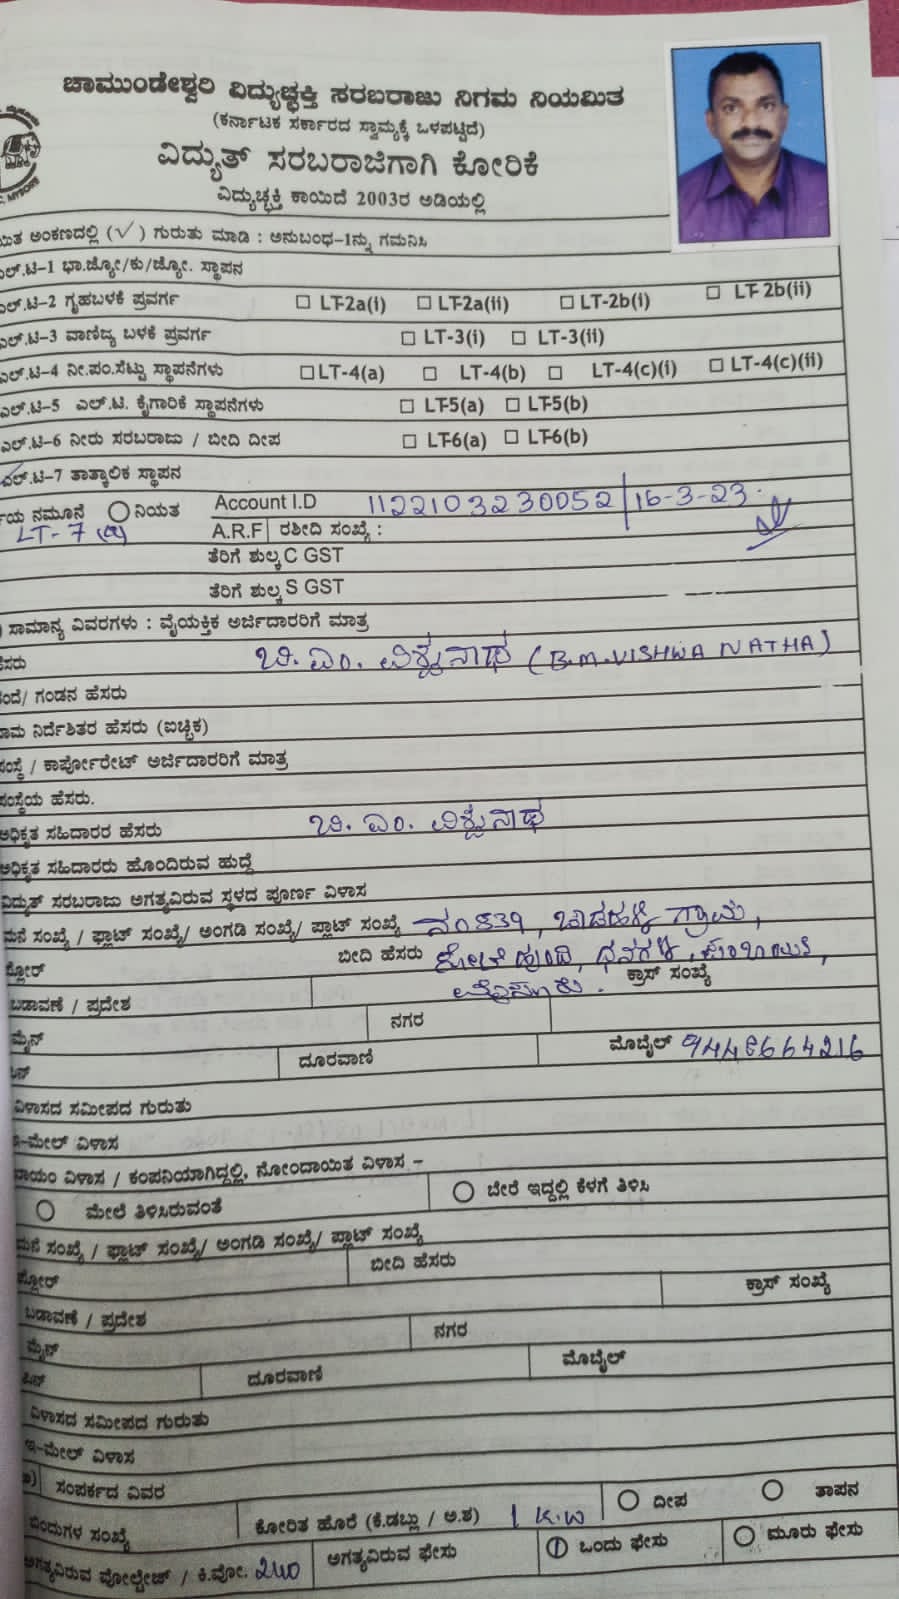 ಚಾಮುಂಡೇಶ್ವರಿ ವಿದ್ಯುಚ್ಛಕ್ತಿ ಸರಬರಾಜು ನಿಗಮ ನಿಯಮಿತ
(ಕರ್ನಾಟಕ ಸರ್ಕಾರದ ಸ್ವಾಮ್ಯಕ್ಕೆ ಒಳಪಟ್ಟಿದೆ)
ವಿದ್ಯುತ್ ಸರಬರಾಜಿಗಾಗಿ ಕೋರಿಕೆ
ವಿದ್ಯುಚ್ಛಕ್ತಿ ಕಾಯಿದೆ 2003ರ ಅಡಿಯಲ್ಲಿ
ಅಂಕಣದಲ್ಲಿ (✓) ಗುರುತು ಮಾಡಿ : ಅನುಬಂಧ-1ನ್ನು ಗಮನಿಸಿ
ಎಲ್.ಟಿ-1 ಭಾ.ಜ್ಯೋ/ಕು/ಜ್ಯೋ. ಸ್ಥಾಪನ
ಎಲ್.ಟಿ-2 ಗೃಹಬಳಕೆ ಪ್ರವರ್ಗ LT-2a(i) LT-2a(ii) LT-2b(i) LT-2b(ii)
ಎಲ್.ಟಿ-3 ವಾಣಿಜ್ಯ ಬಳಕೆ ಪ್ರವರ್ಗ LT-3(i) LT-3(ii)
ಎಲ್.ಟಿ-4 ನೀ.ಪಂ.ಸೆಟ್ಟು ಸ್ಥಾಪನೆಗಳು LT-4(a) LT-4(b) LT-4(c)(i) LT-4(c)(ii)
ಎಲ್.ಟಿ-5 ಎಲ್.ಟಿ. ಕೈಗಾರಿಕೆ ಸ್ಥಾಪನೆಗಳು LT-5(a) LT-5(b)
ಎಲ್.ಟಿ-6 ನೀರು ಸರಬರಾಜು / ಬೀದಿ ದೀಪ LT-6(a) LT-6(b)
ಎಲ್.ಟಿ-7 ತಾತ್ಕಾಲಿಕ ಸ್ಥಾಪನ
ನಮೂನೆ ನಿಯತ Account I.D 1122103230052 | 16-3-23
LT-7 (a) A.R.F ರಶೀದಿ ಸಂಖ್ಯೆ :
ತೆರಿಗೆ ಶುಲ್ಕ C GST
ತೆರಿಗೆ ಶುಲ್ಕ S GST
ಸಾಮಾನ್ಯ ವಿವರಗಳು : ವೈಯಕ್ತಿಕ ಅರ್ಜಿದಾರರಿಗೆ ಮಾತ್ರ
ಹೆಸರು ಬಿ. ಎಂ. ವಿಶ್ವನಾಥ (B.M.VISHWA NATHA)
ತಂದೆ/ ಗಂಡನ ಹೆಸರು
ನಾಮ ನಿರ್ದೇಶಿತರ ಹೆಸರು (ಐಚ್ಛಿಕ)
ಸಂಸ್ಥೆ / ಕಾರ್ಪೋರೇಟ್ ಅರ್ಜಿದಾರರಿಗೆ ಮಾತ್ರ
ಸಂಸ್ಥೆಯ ಹೆಸರು.
ಅಧಿಕೃತ ಸಹಿದಾರರ ಹೆಸರು ಬಿ. ಎಂ. ವಿಶ್ವನಾಥ
ಅಧಿಕೃತ ಸಹಿದಾರರು ಹೊಂದಿರುವ ಹುದ್ದೆ
ವಿದ್ಯುತ್ ಸರಬರಾಜು ಅಗತ್ಯವಿರುವ ಸ್ಥಳದ ಪೂರ್ಣ ವಿಳಾಸ
ಮನೆ ಸಂಖ್ಯೆ / ಫ್ಲಾಟ್ ಸಂಖ್ಯೆ/ ಅಂಗಡಿ ಸಂಖ್ಯೆ/ ಪ್ಲಾಟ್ ಸಂಖ್ಯೆ ಗ್ರಾಮ,
ಫ್ಲೋರ್ ಬೀದಿ ಹೆಸರು
ಮೈಸೂರು. ಕ್ರಾಸ್ ಸಂಖ್ಯೆ
ಬಡಾವಣೆ / ಪ್ರದೇಶ ನಗರ
ಮೈನ್ ದೂರವಾಣಿ ಮೊಬೈಲ್ 9448664216
ಪಿನ್
ವಿಳಾಸದ ಸಮೀಪದ ಗುರುತು
ಇ-ಮೇಲ್ ವಿಳಾಸ
ಖಾಯಂ ವಿಳಾಸ / ಕಂಪನಿಯಾಗಿದ್ದಲ್ಲಿ, ನೋಂದಾಯಿತ ವಿಳಾಸ -
ಮೇಲೆ ತಿಳಿಸಿರುವಂತೆ ಬೇರೆ ಇದ್ದಲ್ಲಿ ಕೆಳಗೆ ತಿಳಿಸಿ
ಮನೆ ಸಂಖ್ಯೆ / ಫ್ಲಾಟ್ ಸಂಖ್ಯೆ/ ಅಂಗಡಿ ಸಂಖ್ಯೆ/ ಪ್ಲಾಟ್ ಸಂಖ್ಯೆ
ಫ್ಲೋರ್ ಬೀದಿ ಹೆಸರು ಕ್ರಾಸ್ ಸಂಖ್ಯೆ
ಬಡಾವಣೆ / ಪ್ರದೇಶ ನಗರ
ಮೈನ್ ದೂರವಾಣಿ ಮೊಬೈಲ್
ಪಿನ್
ವಿಳಾಸದ ಸಮೀಪದ ಗುರುತು
ಇ-ಮೇಲ್ ವಿಳಾಸ
ಸಂಪರ್ಕದ ವಿವರ ದೀಪ ತಾಪನ
ಬಿಂದುಗಳ ಸಂಖ್ಯೆ ಕೋರಿತ ಹೊರೆ (ಕೆ.ಡಬ್ಲು / ಅ.ಶ) 1 K.W
ಅಗತ್ಯವಿರುವ ವೋಲ್ಟೇಜ್ / ಕಿ.ವೋ. 240 ಅಗತ್ಯವಿರುವ ಫೇಸು ಒಂದು ಫೇಸು ಮೂರು ಫೇಸು